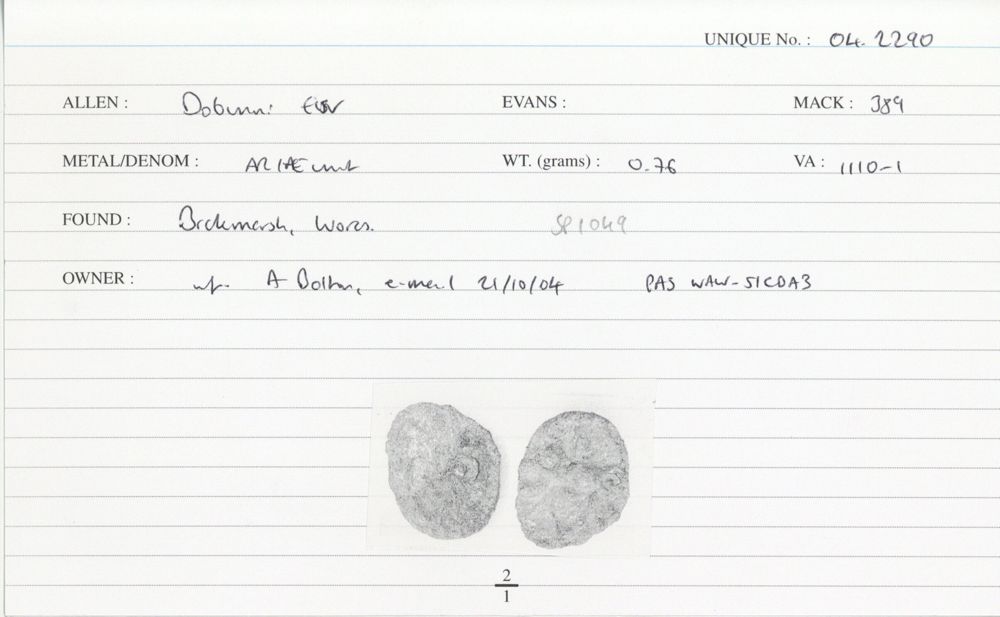 UNIQUE No. : 04.2290
ALLEN : Dobunni EISV EVANS : MACK : 389
METAL/DENOM : AR/AE unit WT. (grams) : 0.76 VA : 1110-1
FOUND : Brckmarsh, Worcs. SP1049
OWNER : inf. A Bolton, e-mail 21/10/04 PAS WAW-51CDA3
2
1